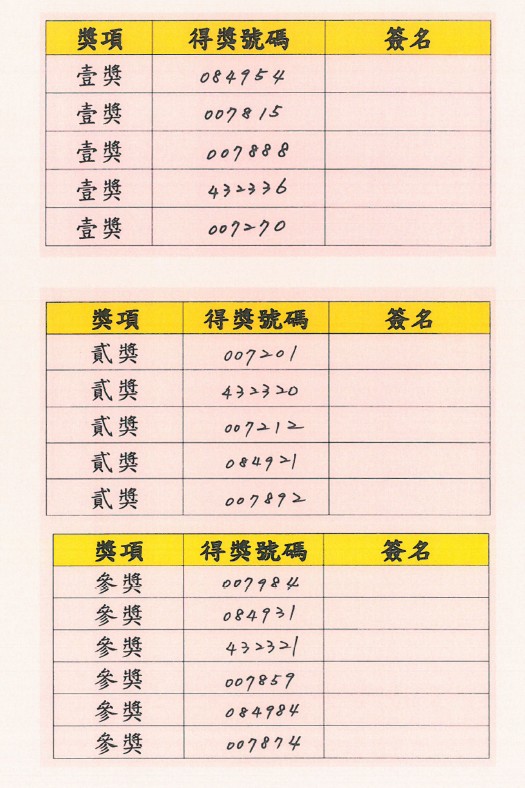 獎項 得獎號碼 簽名
壹獎 084954
壹獎 007815
壹獎 007888
壹獎 432336
壹獎 007270
獎項 得獎號碼 簽名
貳獎 007201
貳獎 432320
貳獎 007212
貳獎 084921
貳獎 007892
獎項 得獎號碼 簽名
參獎 007984
參獎 084931
參獎 432321
參獎 007859
參獎 084984
參獎 007874